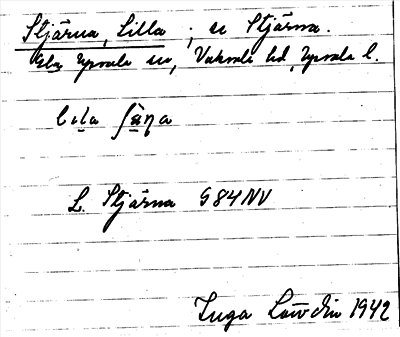 Stjärna, Lilla ; se Stjärna.
Gla Uppsala sn, Vaksala hd, Uppsala l.
lıla ʃäɳa
L. Stjärna G84NV
Inga Löwdin 1942